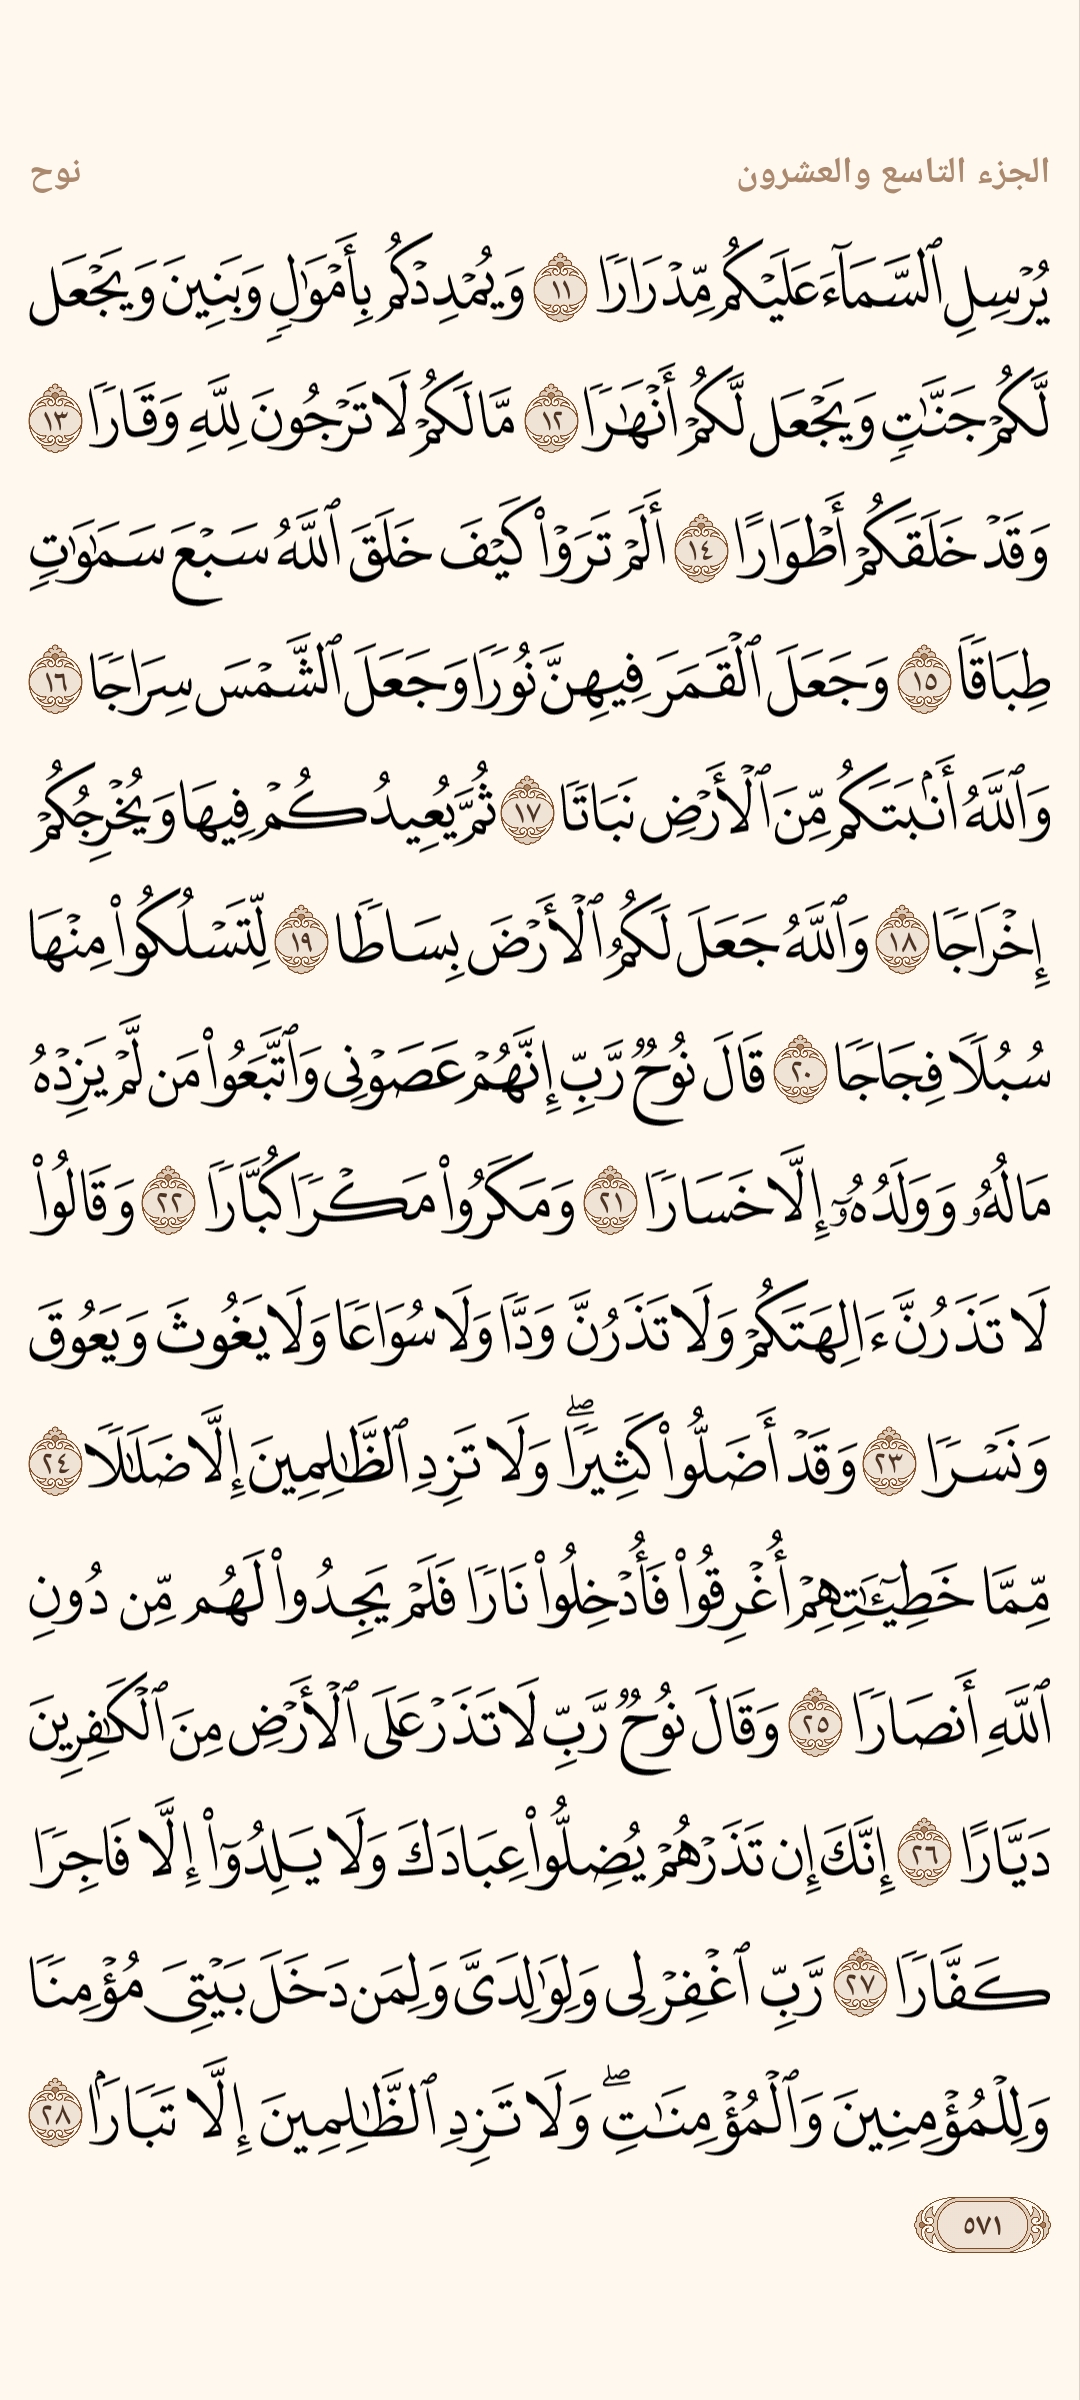 الجزء التاسع والعشرون
نوح
يُرْسِلِ ٱلسَّمَآءَ عَلَيْكُم مِّدْرَارًا ١١ وَيُمْدِدْكُم بِأَمْوَٰلٍ وَبَنِينَ وَيَجْعَل
لَّكُمْ جَنَّٰتٍ وَيَجْعَل لَّكُمْ أَنْهَٰرًا ١٢ مَّا لَكُمْ لَا تَرْجُونَ لِلَّهِ وَقَارًا ١٣
وَقَدْ خَلَقَكُمْ أَطْوَارًا ١٤ أَلَمْ تَرَوْا۟ كَيْفَ خَلَقَ ٱللَّهُ سَبْعَ سَمَٰوَٰتٍ
طِبَاقًا ١٥ وَجَعَلَ ٱلْقَمَرَ فِيهِنَّ نُورًا وَجَعَلَ ٱلشَّمْسَ سِرَاجًا ١٦
وَٱللَّهُ أَنۢبَتَكُم مِّنَ ٱلْأَرْضِ نَبَاتًا ١٧ ثُمَّ يُعِيدُكُمْ فِيهَا وَيُخْرِجُكُمْ
إِخْرَاجًا ١٨ وَٱللَّهُ جَعَلَ لَكُمُ ٱلْأَرْضَ بِسَاطًا ١٩ لِّتَسْلُكُوا۟ مِنْهَا
سُبُلًا فِجَاجًا ٢٠ قَالَ نُوحٌ رَّبِّ إِنَّهُمْ عَصَوْنِى وَٱتَّبَعُوا۟ مَن لَّمْ يَزِدْهُ
مَالُهُۥ وَوَلَدُهُۥٓ إِلَّا خَسَارًا ٢١ وَمَكَرُوا۟ مَكْرًا كُبَّارًا ٢٢ وَقَالُوا۟
لَا تَذَرُنَّ ءَالِهَتَكُمْ وَلَا تَذَرُنَّ وَدًّا وَلَا سُوَاعًا وَلَا يَغُوثَ وَيَعُوقَ
وَنَسْرًا ٢٣ وَقَدْ أَضَلُّوا۟ كَثِيرًا ۖ وَلَا تَزِدِ ٱلظَّٰلِمِينَ إِلَّا ضَلَٰلًا ٢٤
مِّمَّا خَطِيٓـَٰٔتِهِمْ أُغْرِقُوا۟ فَأُدْخِلُوا۟ نَارًا فَلَمْ يَجِدُوا۟ لَهُم مِّن دُونِ
ٱللَّهِ أَنصَارًا ٢٥ وَقَالَ نُوحٌ رَّبِّ لَا تَذَرْ عَلَى ٱلْأَرْضِ مِنَ ٱلْكَٰفِرِينَ
دَيَّارًا ٢٦ إِنَّكَ إِن تَذَرْهُمْ يُضِلُّوا۟ عِبَادَكَ وَلَا يَلِدُوٓا۟ إِلَّا فَاجِرًا
كَفَّارًا ٢٧ رَّبِّ ٱغْفِرْ لِى وَلِوَٰلِدَىَّ وَلِمَن دَخَلَ بَيْتِىَ مُؤْمِنًا
وَلِلْمُؤْمِنِينَ وَٱلْمُؤْمِنَٰتِ ۖ وَلَا تَزِدِ ٱلظَّٰلِمِينَ إِلَّا تَبَارًۢا ٢٨
٥٧١